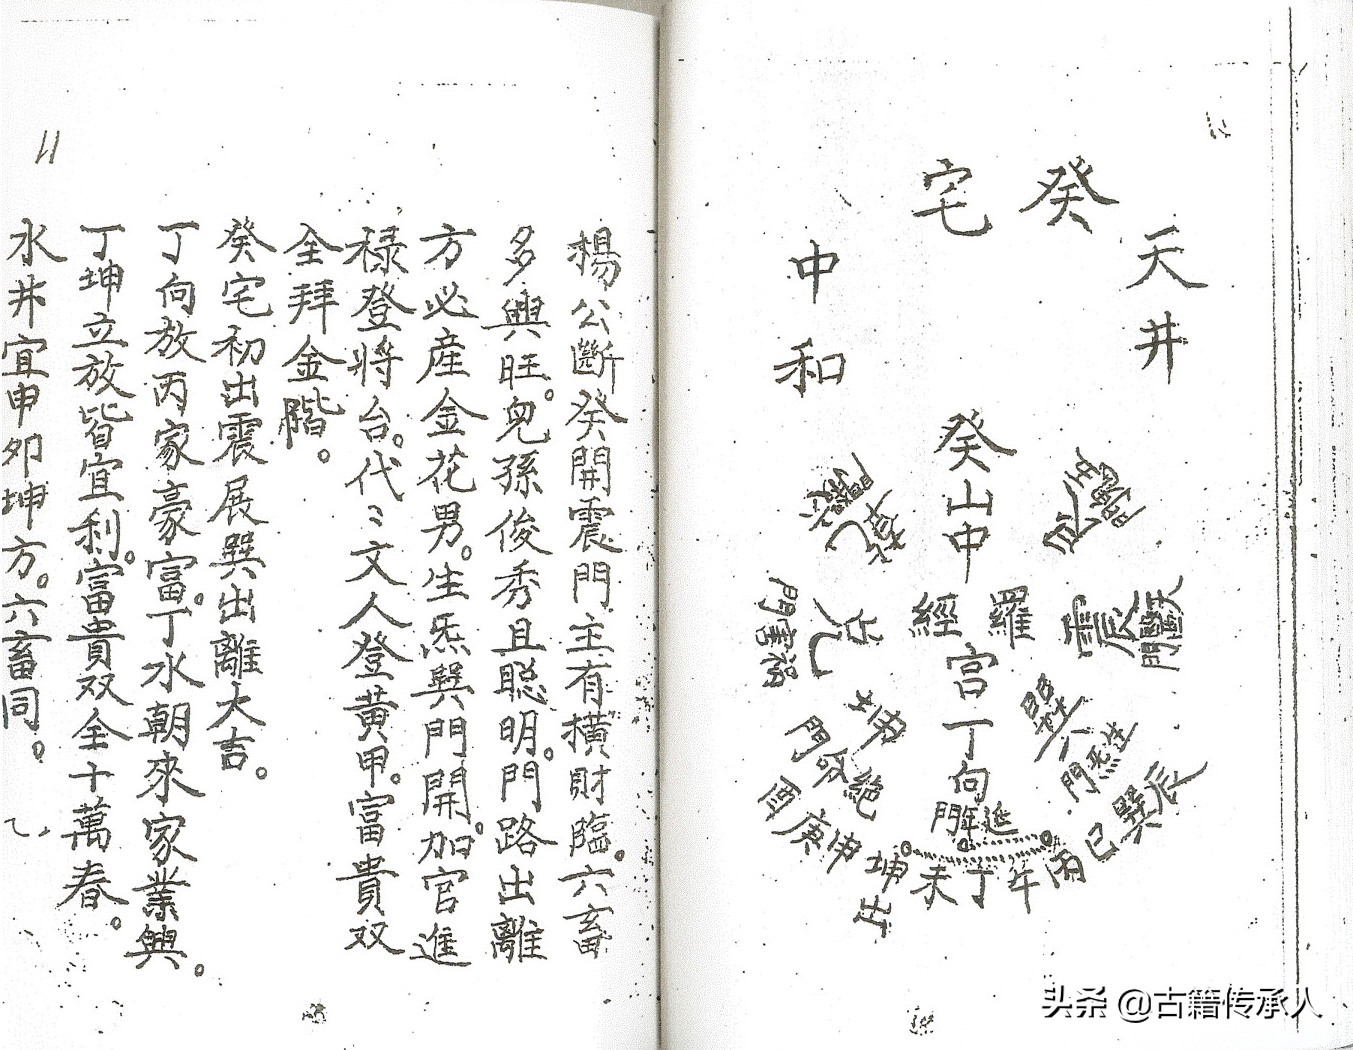 癸宅
天井
中和
癸山中
羅經
宮
丁向
艮
震
天醫門
巽
生炁門
延年門
坤
絕命門
兌
禍害門
乾
辰巽巳丙午丁未坤申庚酉
楊公斷癸開震門主有橫財臨。六畜
多興旺。兒孫俊秀且聪明。門路出離
方必產金花男。生炁巽門開。加官進
祿登將台。代〻文人登黃甲。富貴双
全拜金階。
癸宅初出震展巽出離大吉。
丁向放丙家豪富。丁水朝來家業興。
丁坤立放皆宜利。富貴双全十萬春。
水井宜申卯坤方。六畜同。
头条 @古籍传承人